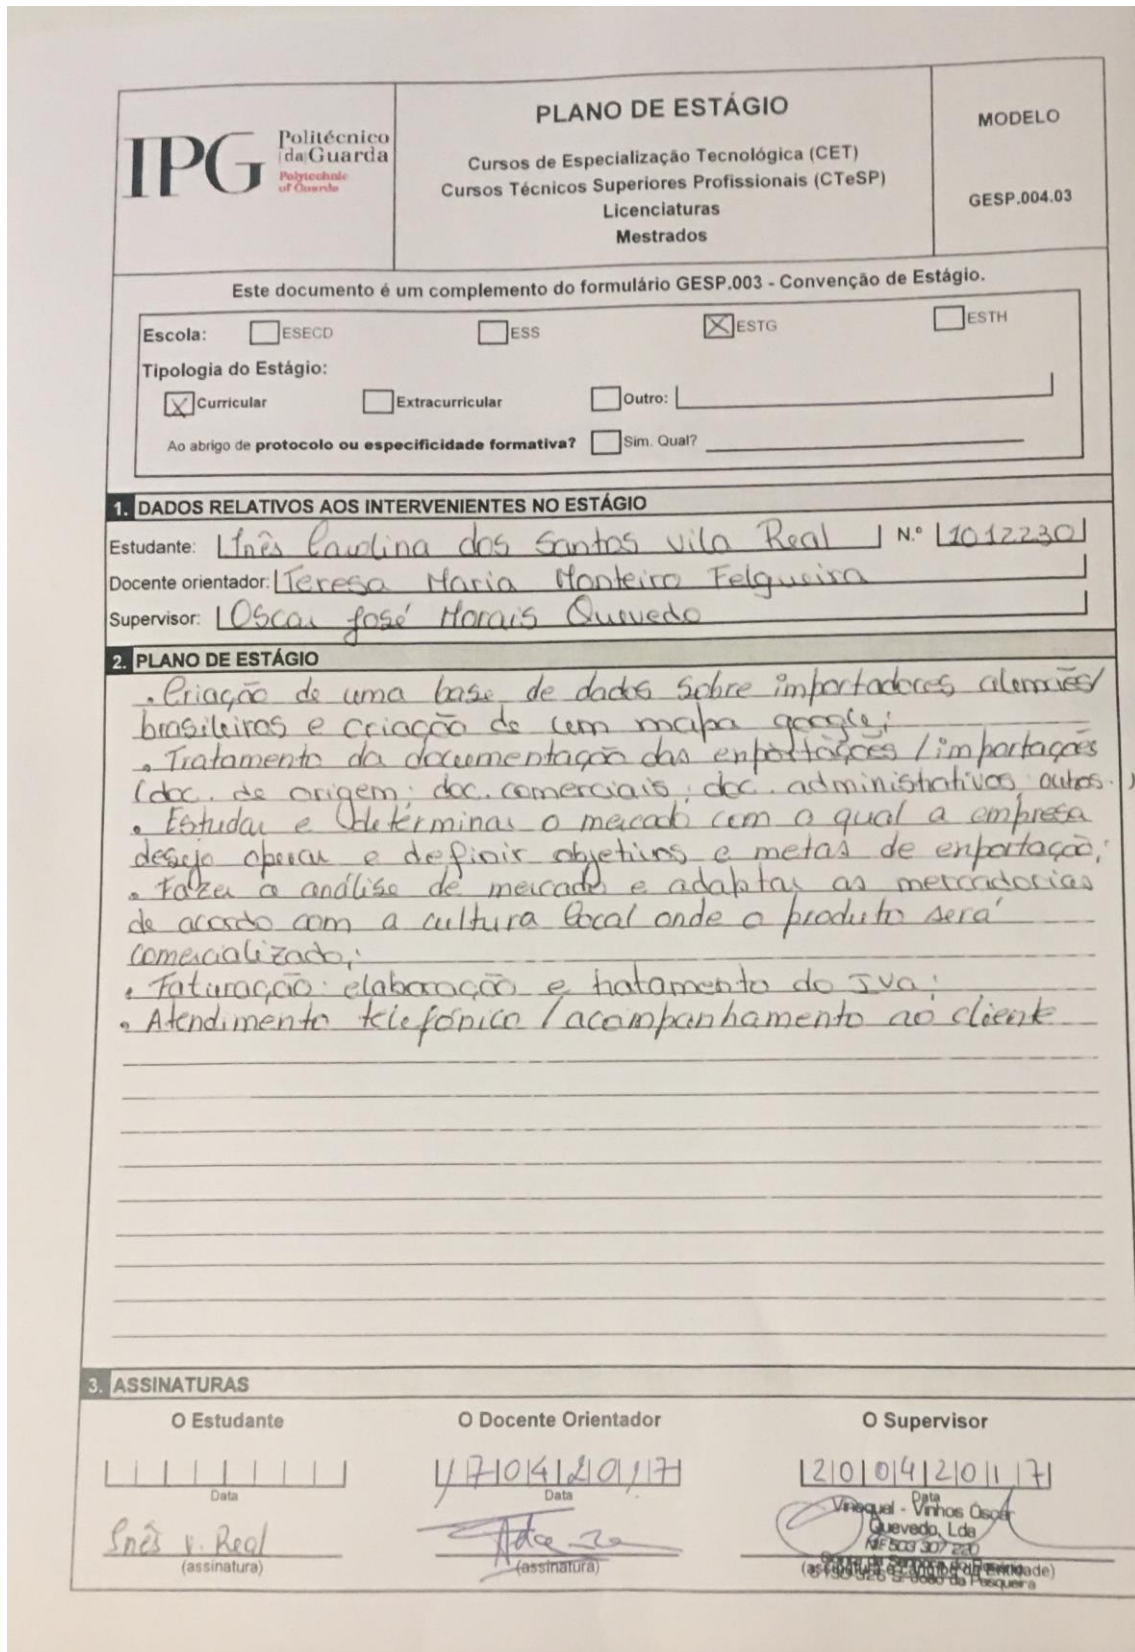 IPG
Politécnico
da Guarda
Polytechnic
of Guarda
PLANO DE ESTÁGIO
Cursos de Especialização Tecnológica (CET)
Cursos Técnicos Superiores Profissionais (CTeSP)
Licenciaturas
Mestrados
MODELO
GESP.004.03
Este documento é um complemento do formulário GESP.003 - Convenção de Estágio.
Escola: ESECD ESS X ESTG ESTH
Tipologia do Estágio:
X Curricular Extracurricular Outro:
Ao abrigo de protocolo ou especificidade formativa? Sim. Qual?
1. DADOS RELATIVOS AOS INTERVENIENTES NO ESTÁGIO
Estudante: Inês Carolina dos Santos Vila Real N.º 1012230
Docente orientador: Teresa Maria Monteiro Felgueira
Supervisor: Oscar José Morais Quevedo
2. PLANO DE ESTÁGIO
. Criação de uma base de dados sobre importadores alemães/
brasileiros e criação de um mapa google;
. Tratamento da documentação das exportações / importações
(doc. de origem; doc. comerciais; doc. administrativos; outros.)
. Estudar e determinar o mercado com o qual a empresa
deseja operar e definir objetivos e metas de exportação;
. Fazer a análise de mercado e adaptar as mercadorias
de acordo com a cultura local onde o produto será
comercializado;
. Faturação: elaboração e tratamento do Iva;
. Atendimento telefónico / acompanhamento ao cliente
3. ASSINATURAS
O Estudante O Docente Orientador O Supervisor
17042017 20042017
Data Data Data
Vinoquel - Vinhos Óscar
Quevedo, Lda
NIF 503 307 220
Inês V. Real
(assinatura) (assinatura) (assinatura e carimbo da Entidade)
S. João da Pesqueira